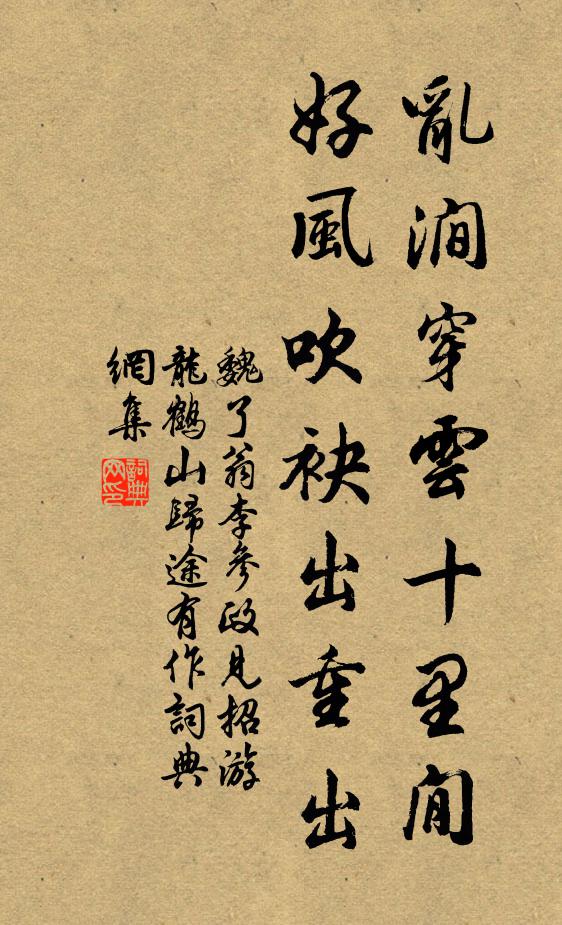 亂澗穿雲十里間
好風吹袂出重出
魏了翁李參政見招游
龍鶴山歸途有作詞典
網集
詞典網印